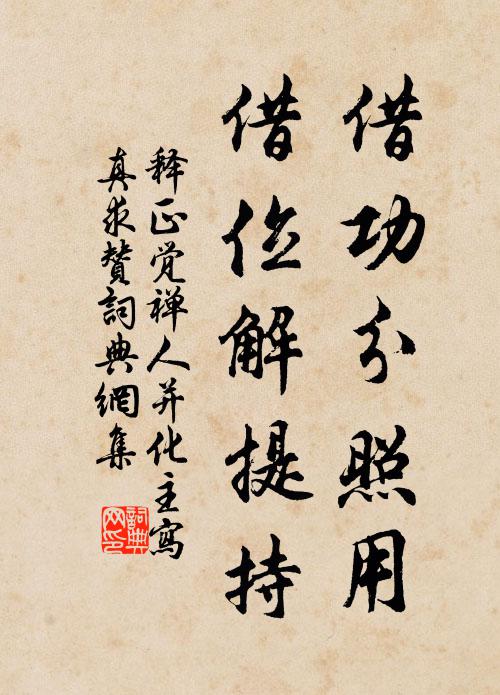 借功分照用
借位解提持
释正觉禅人并化主寫
真求賛詞典網集
詞典网印